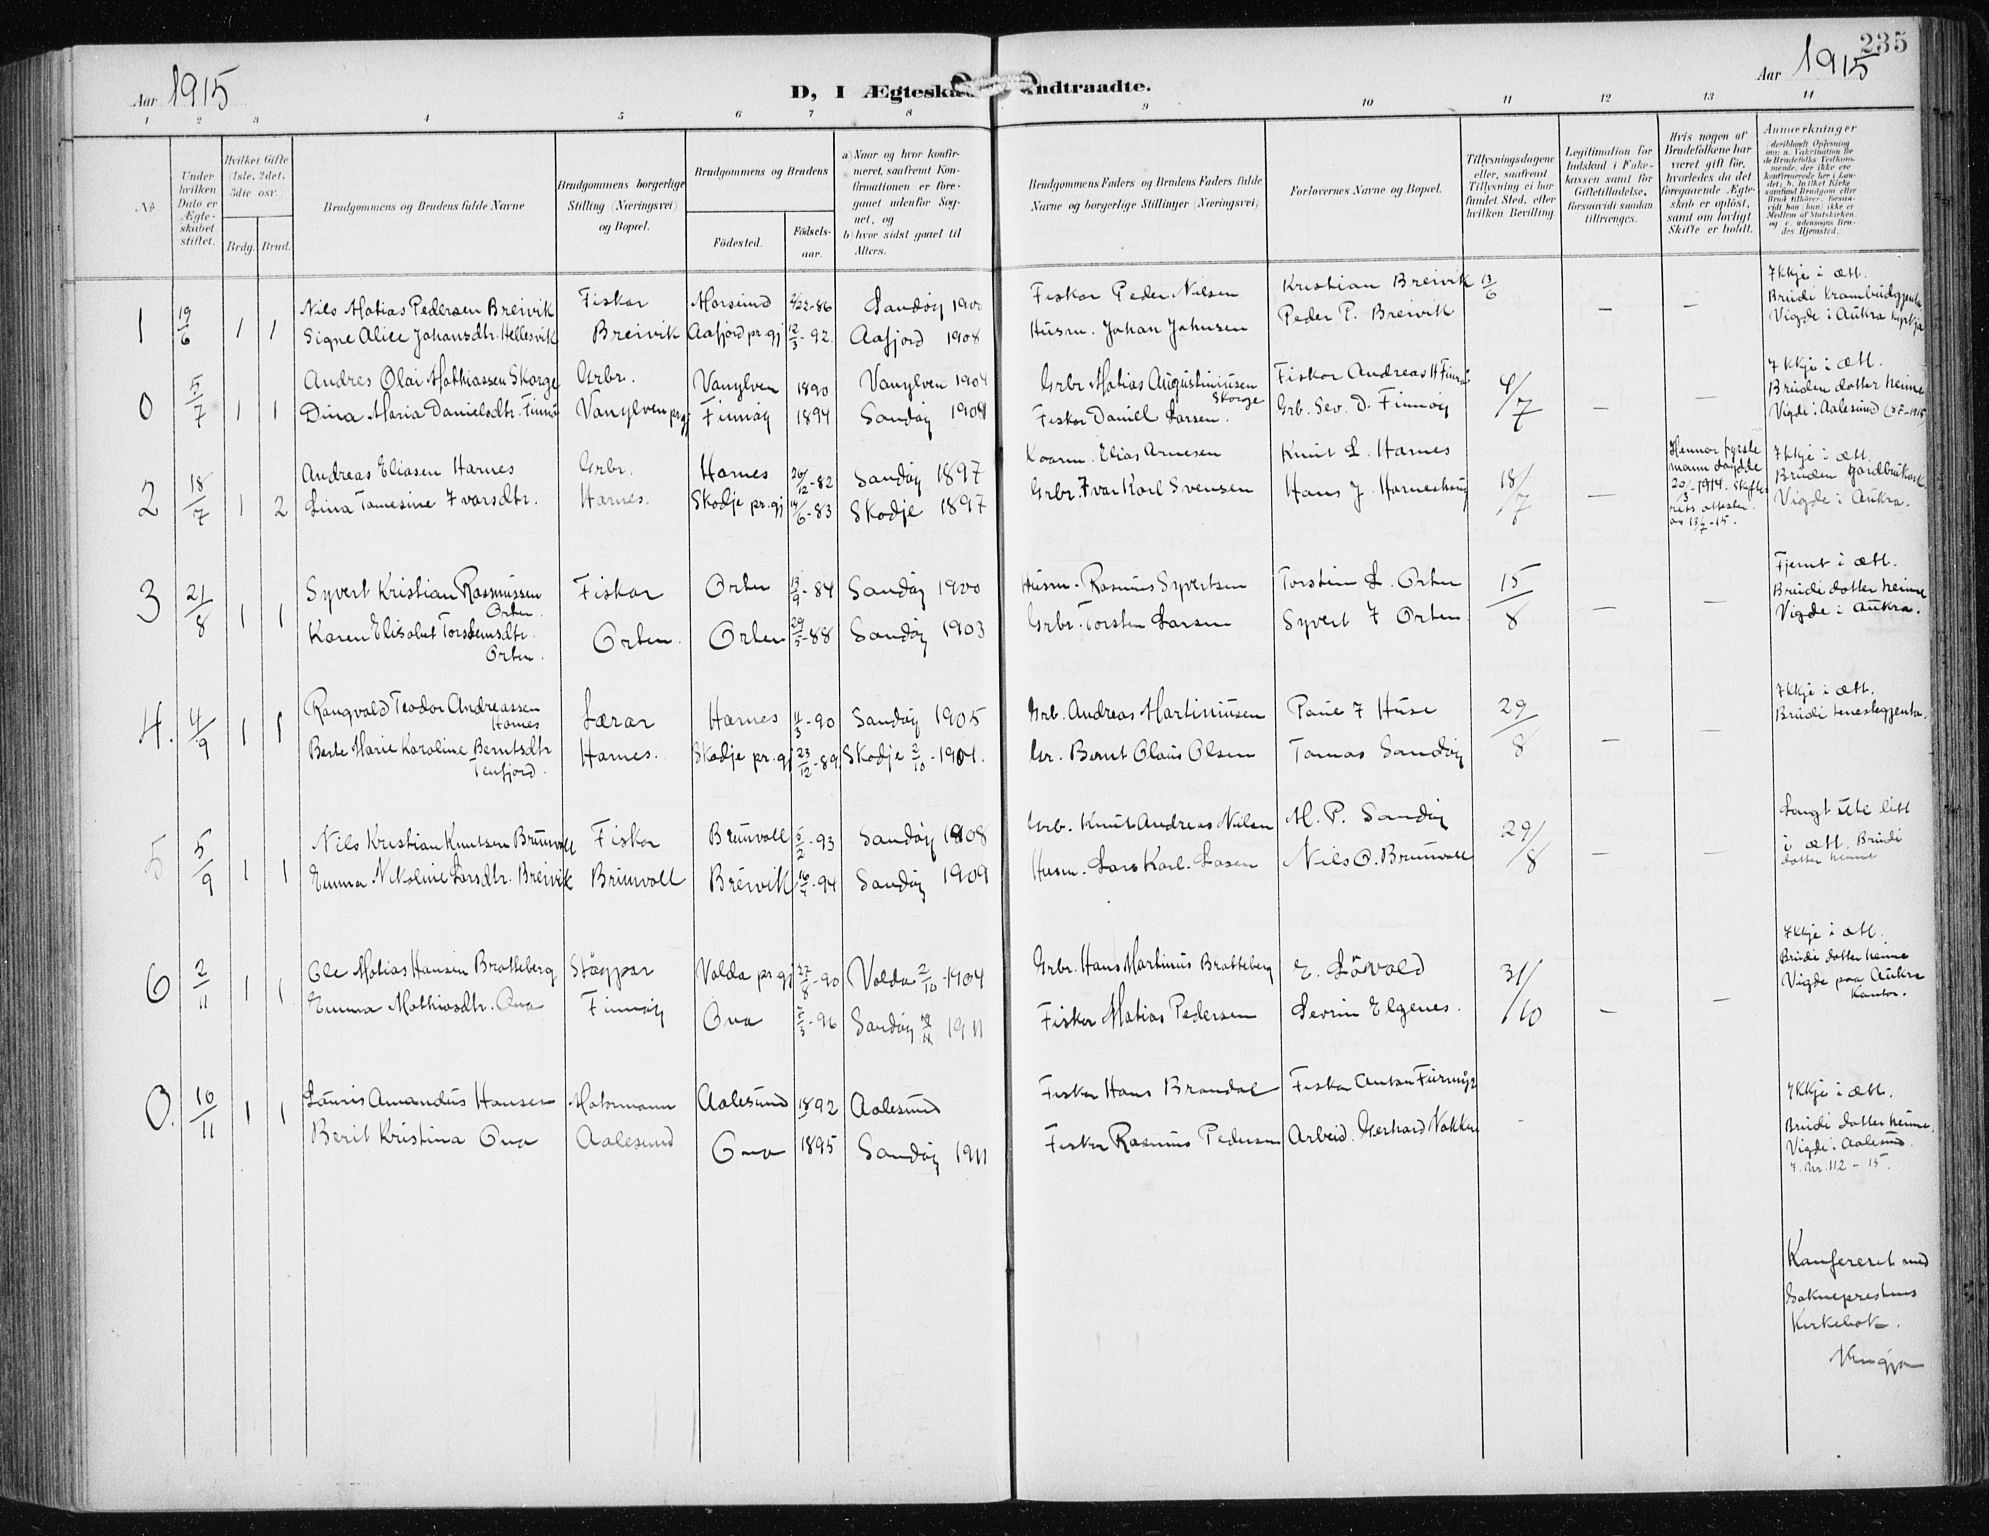 235
Aar 1915
D, I Ægteska ndtraadte.
Aar 1915
1 2 3 4 5 6 7 8 9 10 11 12 13 14
No
Under hvilken Dato er Ægteskabet stiftet.
Hvilket Gifte (1ste, 2det, 3die osv.)
Brdg. Brud.
Brudgommens og Brudens fulde Navne
Brudgommens borgerlige Stilling (Næringsvei) og Bopæl.
Brudgommens og Brudens
Födested.
Födselsaar.
a) Naar og hvor konfirmeret, saafremt Konfirmationen er foregaaet udenfor Sognet, og
b) hvor sidst gaaet til Alters.
Brudgommens Faders og Brudens Faders fulde Navne og borgerlige Stillinger (Næringsvei)
Forlovernes Navne og Bopæl.
Tillysningsdagene eller, saafremt Tillysning ei har fundet Sted, efter hvilken Bevilling.
Legitimation for Indskud i Enkekassen samt for Giftetilladelse, forsaavidt saadan tiltrænges.
Hvis nogen af Brudefolkene har været gift før, hvorledes da det foregaaende Ægteskab er oplöst, samt om lovligt Skifte er holdt.
Anmærkninger
1 19/6 1 1 Nils Matias Pedersen Breivik Fiskar Morsund 2/22-86 Sandøy 1900 Fiskar Peder Nilsen Kristian Breivik 13/6 — — Ikkje i ætt.
Signe Alice Johansdtr. Hellesvik Breivik Aafjord pr.gj 12/3-92 Aafjord 1908 Husm. Johan Johnsen Peder P. Breivik Brudi krambudgjenta
Vigde i Aukra kyrkja
0 5/7 1 1 Andres Olai Mathiassen Skorge Grbr. Vanylven 1890 Vanylven 1904 Grbr Matias Augustinusen Skorge Fiskar Andreas H Finnøy 4/7 — — Ikkje i ætt.
Dina Maria Danielsdtr. Finnøy Vanylven prgj Finnøy 1894 Sandøy 1909 Fiskar Daniel Larsen. Grb. Sev. D. Finnøy Bruden dotter heime
Vigde i Aalesund
2 18/7 1 2 Andreas Eliasen Harnes Grbr. Harnes 26/12-82 Sandøy 1897 Elias Arnesen Knut L. Harnes 18/7 — Hennar fyrste mann døydde 20/3-1914. Ikkje i ætt.
Lina Tomesine Ivarsdtr. Harnes. Skodje pr.gj 14/6-83 Skodje 1897 Grbr. Ivar Karl Svensen Hans J. Harneshaug Bruden
Vigde i Aukra.
3 21/8 1 1 Syvert Kristian Rasmussen Orten. Fiskar Orten 13/9-84 Sandøy 1900 Husm. Rasmus Syvertsen Torstein L. Orten 15/8 — — Fjernt i ætt.
Karen Elisabet Torsteinsdtr. Orten. Orten. Orten 29/5-88 Sandøy 1903 Grbr. Torsten Larsen Syvert I Orten. Brudi dotter heime
Vigde i Aukra.
4. 4/9 1 1 Rangvald Teodor Andreassen Harnes Lærar Harnes 11/3-90 Sandøy 1905 Grb. Andreas Martinusen Paul I Huse 29/8 — — Ikkje i ætt.
Berte Marie Karoline Berntsdtr Tenfjord. Harnes. Skodje pr.gj 23/12-89 Skodje 2/10-1904. Gr. Bernt Olaus Olsen Tomas Sandøy Brudi tenestegjenta.
5 5/9 1 1 Nils Kristian Knutsen Brunvoll Fiskar Brunvoll 5/2-93 Sandøy 1908 Grb. Knut Andreas Nilsen M. P. Sandøy 29/8 — — Langt ute litt i ætt. Brudi
Emma Nikoline Larsdtr. Breivik Brunvoll Breivik 16/7-94 Sandøy 1909 Husm. Lars Karl. Lasen Nils O. Brunvoll dotter heime
6 2/11 1 1 Ole Matias Hansen Bratteberg Støypar Volda pr.gj 27/8-90 Volda 2/10-1904 Grbr. Hans Martinus Bratteberg E. Løvold 31/10 — — Ikkje i ætt.
Emma Mathiasdtr. Ona Finnøy Ona 7/3-96 Sandøy 1911 Fiskar Matias Pedersen Sevrin Elgenes. Brudi dotter heime
Vigde paa Aukra Kontor.
0. 10/11 1 1 Lauris Amandus Hansen Motormann Aalesund 1892 Aalesund Fiskar Hans Brandal Fiskar Anton Furmyr Ikkje i ætt.
Berit Kristina Ona Aalesund Ona 1895 Sandøy 1911 Fiskar Rasmus Pedersen Arbeid. Gerhard Nakken Brudi dotter heime.
Vigde i Aalesund.
nr. 112 - 15.
Konfereret med
Sokneprestens
Kirkebok.